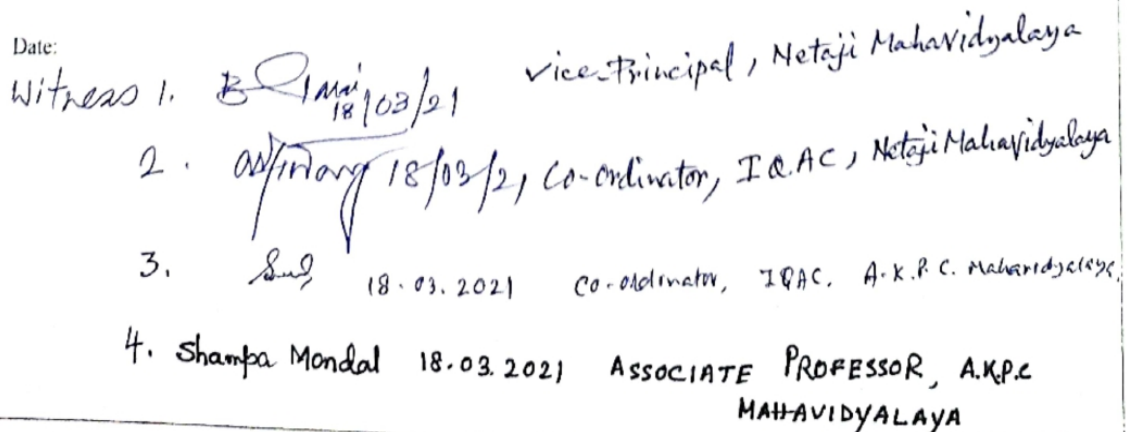 Date:
Witness 1. 18/03/21 Vice-Principal, Netaji Mahavidyalaya
2. 18/03/21 Co-ordinator, IQAC, Netaji Mahavidyalaya
3. 18.03.2021 Co-ordinator, IQAC, A.K.P.C. Mahavidyalaya
4. Shampa Mondal 18.03.2021 ASSOCIATE PROFESSOR, A.K.P.C
MAHAVIDYALAYA